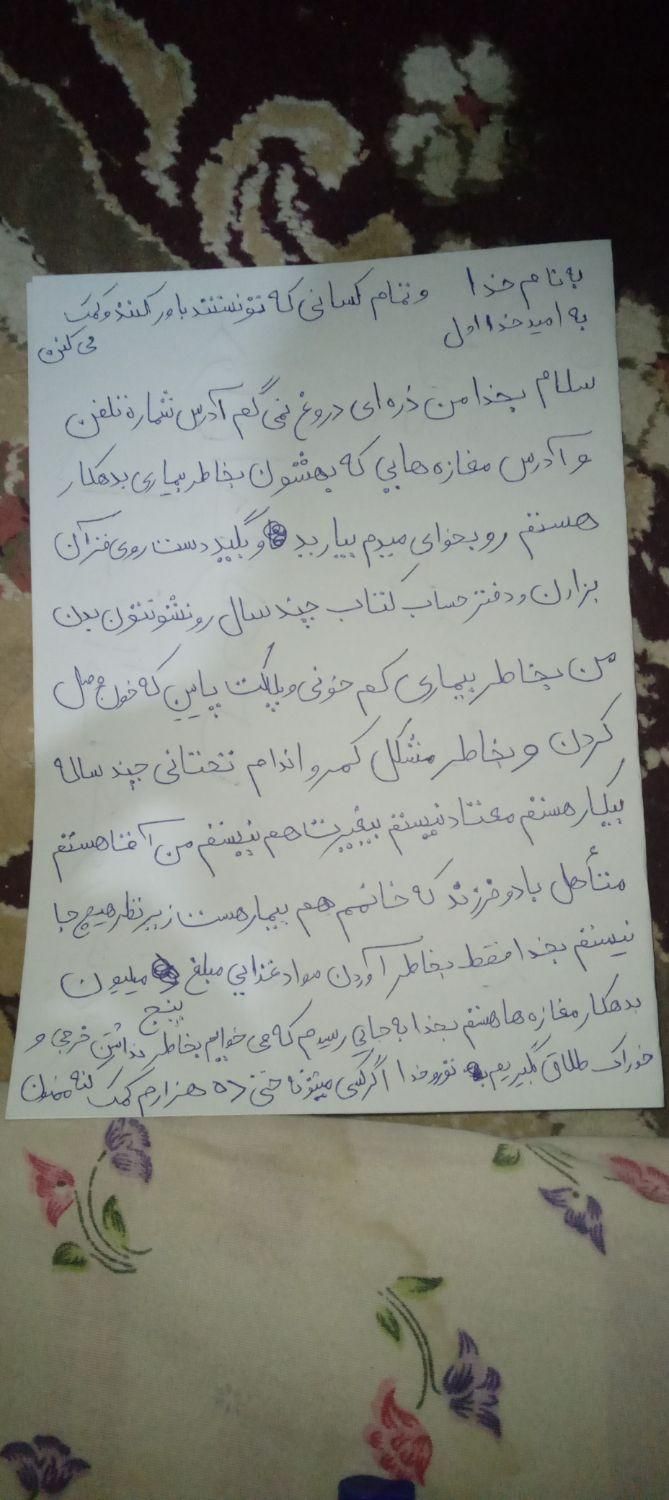 به نام خدا و تمام کسانی که تونستند باور کنند و کمک
به امید خدا اول می کنن
سلام بخدا من ذره ای دروغ نمی گم آدرس شماره تلفن
و آدرس مغازه هایی که بهشون بخاطر بیماری بدهکار
هستم رو بخوای میدم بیارید و بگید دست روی قرآن
بزارن و دفتر حساب کتاب چند سال رو نشونتون بدن
من بخاطر بیماری کم خونی و پلاکت پایین که خون وصل
کردن و بخاطر مشکل کمر و اندام تحتانی چند ساله
بیکار هستم معتاد نیستم بیغیرت هم نیستم من آقا هستم
متأهل با دو فرزند که خانمم هم بیمار هست زیر نظر هیچ جا
نیستم بخدا فقط بخاطر آوردن مواد غذایی مبلغ پنج میلیون
بدهکار مغازه ها هستم بخدا به جایی رسیدم که می خواییم بخاطر نداشتن خرجی و
خوراک طلاق بگیریم تورو خدا اگر کسی میتونه حتی ده هزارم کمک کنه ممنون